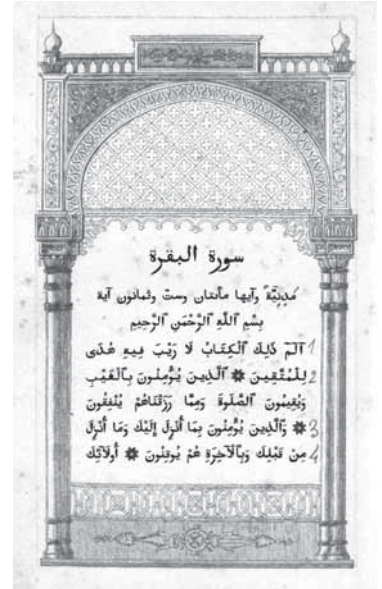 سورة البقرة
مَدِنِيَّة وآيها مأتتان وستّ وثمانون آية
بِسْمِ ٱللَّهِ ٱلرَّحْمَنِ ٱلرَّحِيمِ
1 الٓمٓ ذَلِكَ ٱلْكِتَابُ لَا رَيْبَ فِيهِ هُدًى
2 لِلْمُتَّقِينَ ۞ ٱلَّذِينَ يُؤْمِنُونَ بِٱلْغَيْبِ
وَيُقِيمُونَ ٱلصَّلَوةَ وَمِمَّا رَزَقْنَاهُمْ يُنْفِقُونَ
3 ۞ وَٱلَّذِينَ يُؤْمِنُونَ بِمَا أُنْزِلَ إِلَيْكَ وَمَا أُنْزِلَ
4 مِنْ قَبْلِكَ وَبِٱلْآخِرَةِ هُمْ يُوقِنُونَ ۞ أُولَآئِكَ